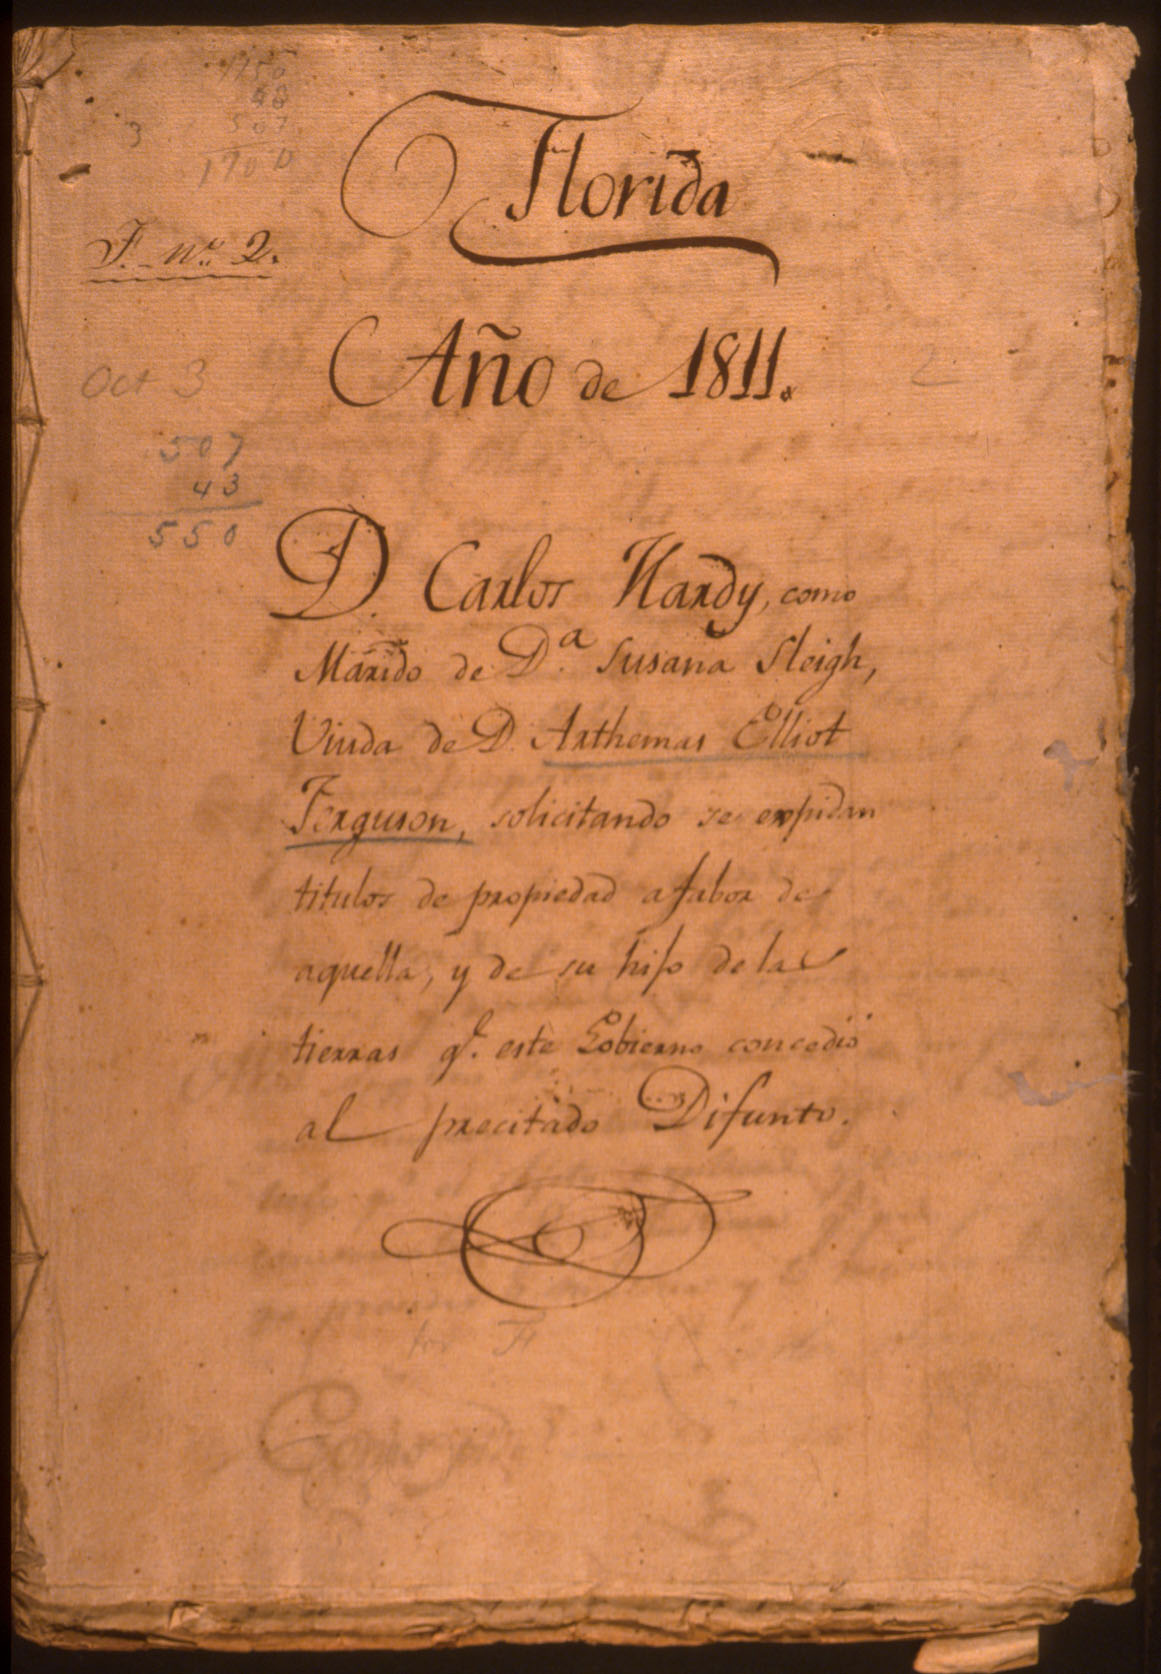 1750
43
507
1700
3
Florida
F. no. 2.
Año de 1811.
Oct 3
2
507
43
550
D. Carlos Hardy, como
Marido de D.a Susana Sleigh,
Viuda de D. Arthemas Elliot
Ferguson, solicitando se expidan
titulos de propiedad a fabor de
aquella, y de su hijo de la
tierras q.e este Gobierno concedió
al precitado Difunto.